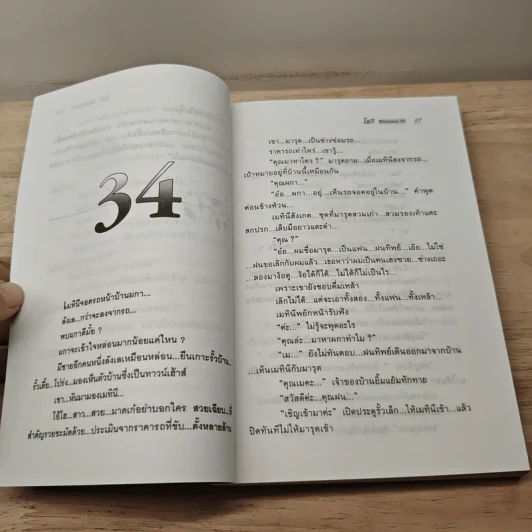 34
เมทินีจอดรถหน้าบ้านผกา...
ลังเล...กว่าจะลงจากรถ...
พบผกาดีมั้ย ?
ผกาจะเข้าใจหล่อนมากน้อยแค่ไหน ?
มีชายอีกคนหนึ่งลังเลเหมือนหล่อน...ยืนเกาะรั้วบ้าน...
รั้วเตี้ย...โปร่ง...มองเห็นตัวบ้านซึ่งเป็นทาวน์เฮ้าส์
เขา...หันมามองเมทินี...
โอ้โฮ...สาว...สวย...มาดเก๋อย่าบอกใคร สวยเฉียบ...
สำคัญรวยซะมัดด้วย...ประเมินจากราคารถที่ขับ...ตั้งหลายล้าน
โสภี พรรณราย 37
เขา...มารุต...เป็นช่างซ่อมรถ
ราคารถเท่าไหร่...เขารู้...
"คุณมาหาใคร ?" มารุตถาม...เมื่อเมทินีลงจากรถ...
เป้าหมายอยู่ที่บ้านนี้เหมือนกัน
"คุณผกา..."
"อ้อ...ผกา...อยู่...เห็นรถจอดอยู่ในบ้าน..." คำพูด
ค่อนข้างห้วน...
เมทินีสังเกต...ชุดที่มารุตสวมเก่า...สวมรองเท้าแตะ
สกปรก...เล็บมือยาวและดำ...
"คุณ ?"
"อ้อ...ผมชื่อมารุต...เป็นแฟน...ฝนทิพย์...เอ๊ย...ไม่ใช่
...ฝนขอเลิกกับผมแล้ว...เธอหาว่าผมเป็นคนเฮงซวย...ช่างเถอะ
...ลองมาง้อดู...ง้อได้ก็ได้...ไม่ได้ก็ไม่เป็นไร...
เพราะเขายังชอบดื่มเหล้า
เลิกไม่ได้...แต่จะเอาทั้งสอง...ทั้งแฟน...ทั้งเหล้า...
เมทินีพยักหน้ารับฟัง
"ค่ะ..." ไม่รู้จะพูดอะไร
"คุณล่ะ...มาหาผกาทำไม ?"
"เม..." ยังไม่ทันตอบ...ฝนทิพย์เดินออกมาจากบ้าน
...เห็นเมทินีกับมารุต
"คุณเมคะ..." เจ้าของบ้านยิ้มแย้มทักทาย
"สวัสดีค่ะ...คุณฝน..."
"เชิญเข้ามาค่ะ" เปิดประตูรั้วเล็ก...ให้เมทินีเข้า...แล้ว
ปิดทันทีไม่ให้มารุตเข้า